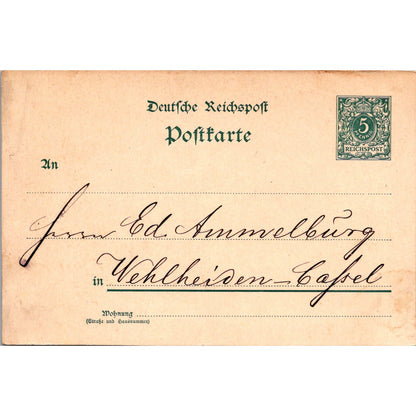 Deutsche Reichspost
Postkarte
5
REICHSPOST
An
Herrn Ed. Ammelburg
in Wehlheiden-Cassel
Wohnung
(Straße und Hausnummer)